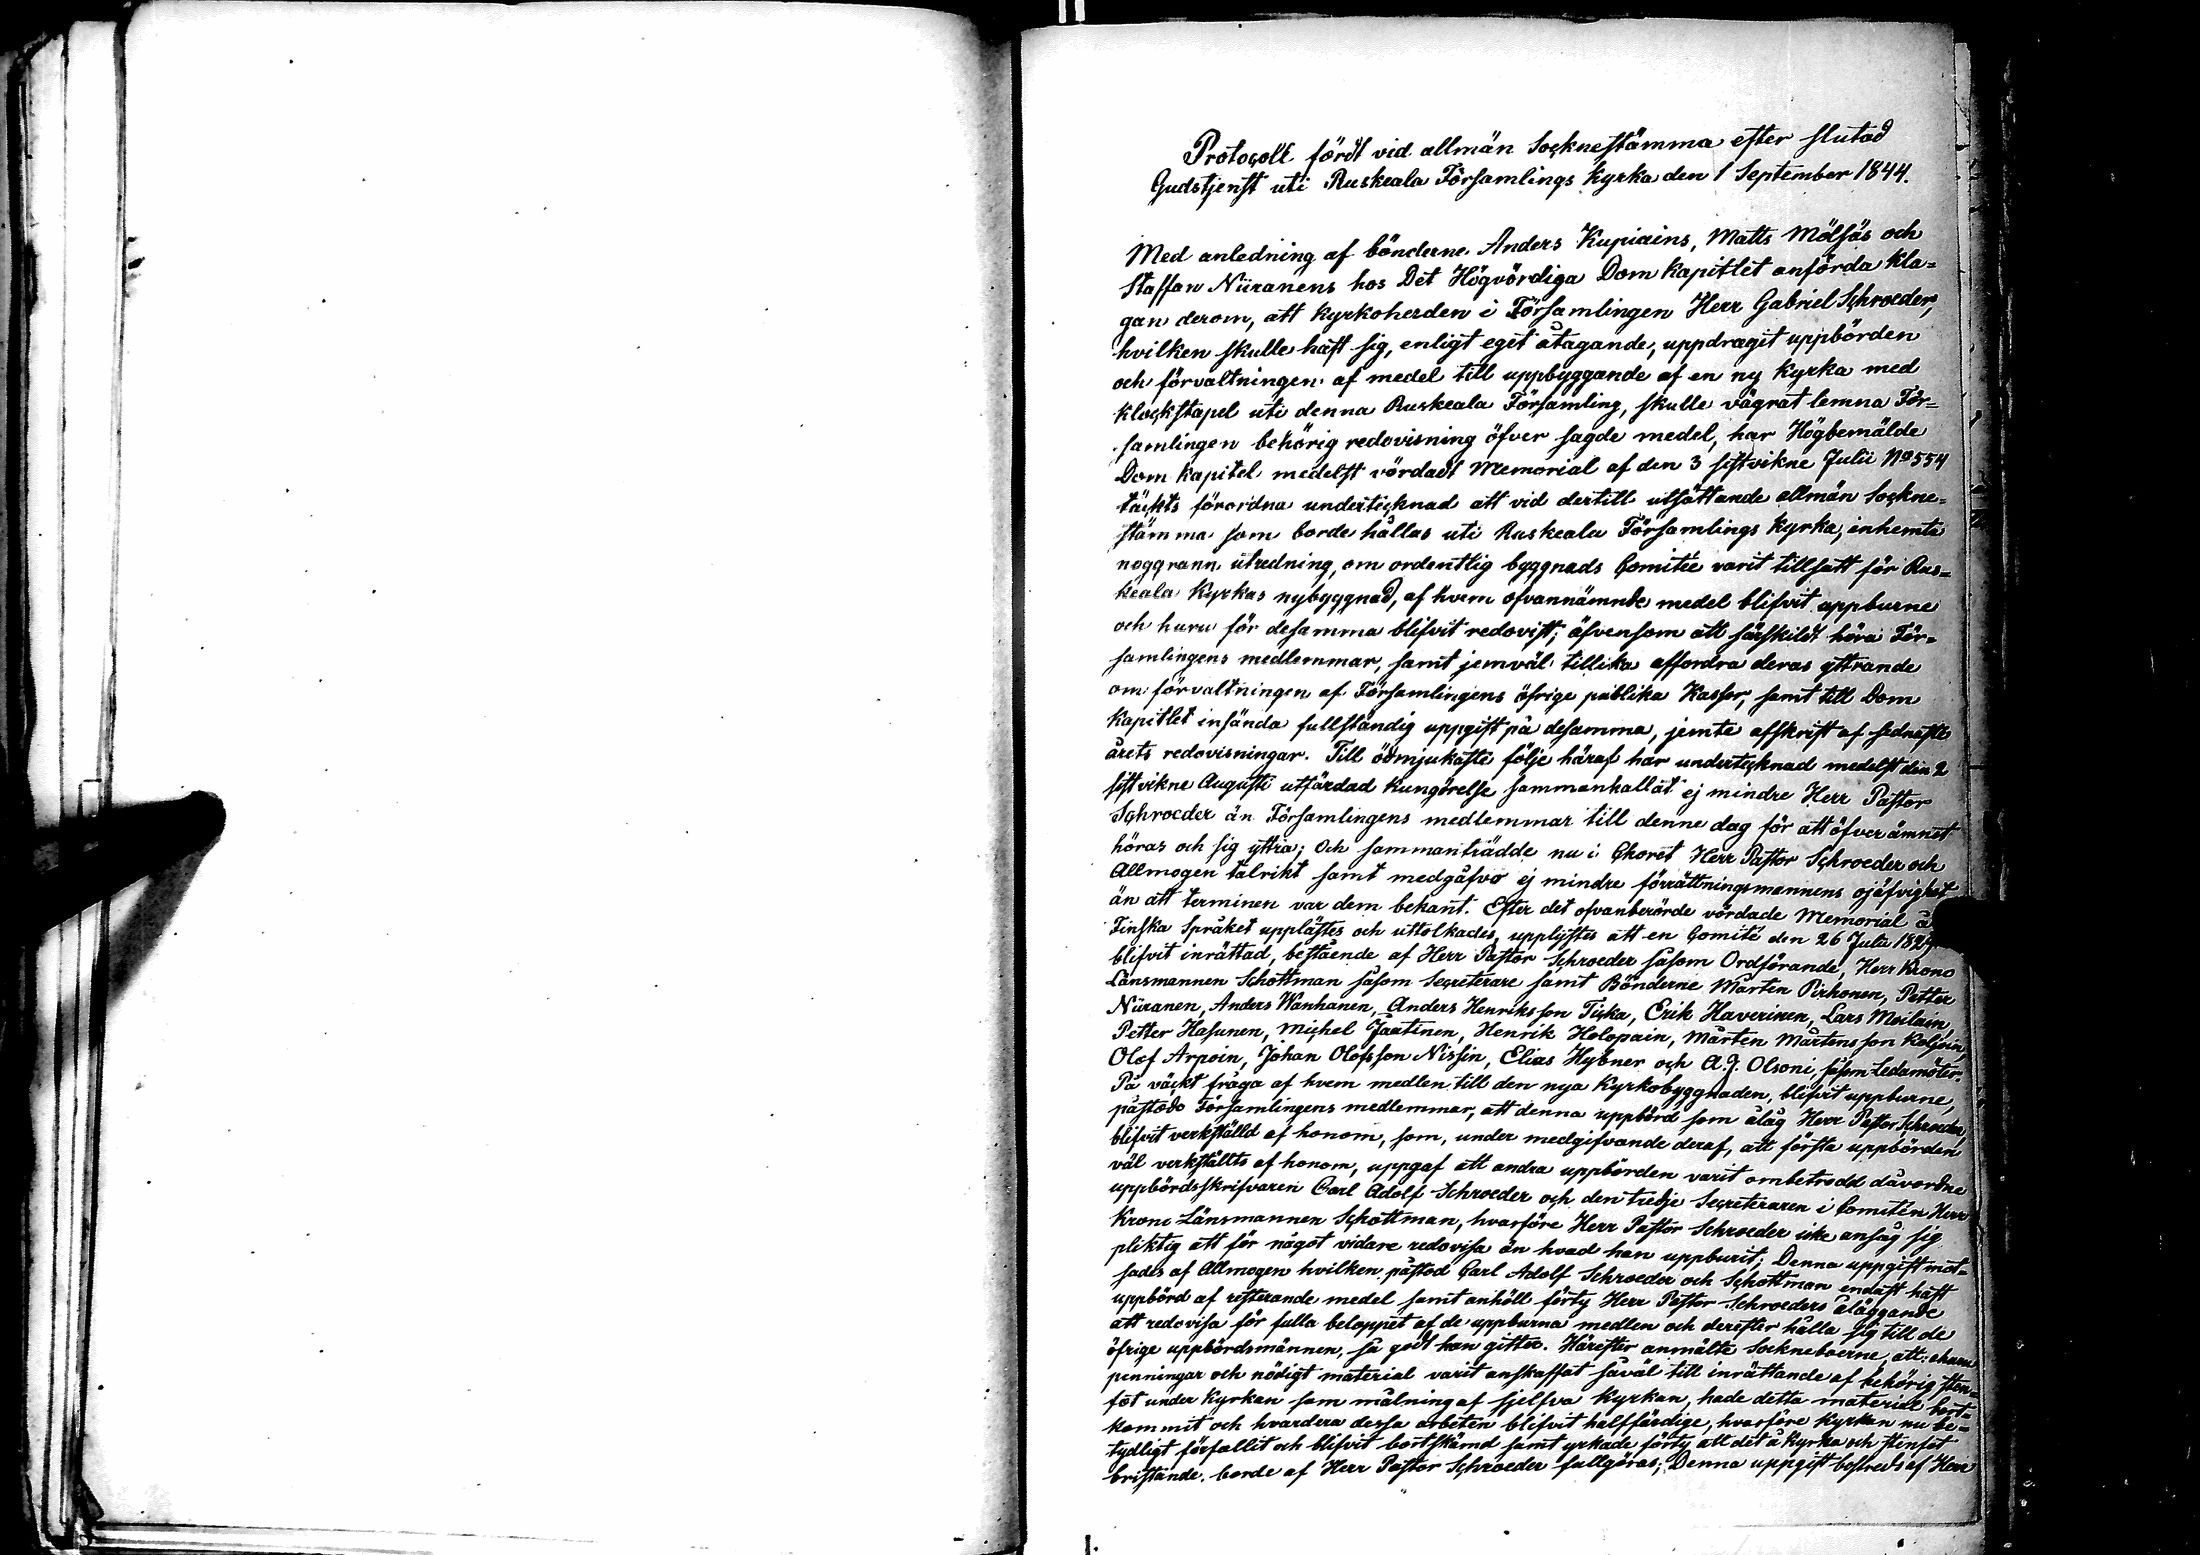 Protocoll fördt vid allmän Socknestämma efter slutad
Gudstjenst uti Ruskeala Församlings Kyrka den 1 September 1844.
Med anledning af bönderne Anders Kupiains, Matts Mölsäs och
Staffan Niiranens hos Det Högvördiga Dom Kapitlet anförda kla=
gan derom, att Kyrkoherden i Församlingen Herr Gabriel Schroeder,
hvilken skulle haft sig, enligt eget åtagande, uppdragit uppbörden
och förvaltningen af medel till uppbyggande af en ny Kyrka med
klockstapel uti denna Ruskeala Församling, skulle vägrat lemna För=
samlingen behörig redovisning öfver sagde medel, har Högbemälde
Dom Kapitel medelst vördadt Memorial af den 3 sistvikne Julii No 554
täckts förordna undertecknad att vid dertill utsättande allmän Sockne=
stämma som borde hållas uti Ruskeala Församlings Kyrka, inhemta
noggrann utredning, om ordentlig byggnads Comitée varit tillsatt för Rus=
keala Kyrkas nybyggnad, af hvem ofvannämnde medel blifvit uppburne
och huru för desamma blifvit redovist; äfvensom att särskildt höra För=
samlingens medlemmar, samt jemväl tillika affordra deras yttrande
om förvaltningen af Församlingens öfrige publika Kassor, samt till Dom
Kapitlet insända fullständig uppgift på desamma, jemte afskrift af sednaste
årets redovisningar. Till ödmjukaste följe häraf har undertecknad medelst den 2
sistvikne Augusti utfärdad Kungörelse sammankallat ej mindre Herr Pastor
Schroeder än Församlingens medlemmar till denne dag för att öfver ämnet
höras och sig yttra; Och sammanträdde nu i Choret Herr Pastor Schroeder och
Allmogen talrikt samt medgåfvo ej mindre förrättningsmannens ojäfvighet
än att terminen var dem bekant. Efter det ofvanberörde vördade Memorial å
Finska Språket upplästes och uttolkades, upplystes att en Comité den 26 Julii
blifvit inrättad, bestående af Herr Pastor Schroeder såsom Ordförande, Herr Krono
Länsmannen Schottman såsom Secreterare samt Bönderne Mårten Pirhonen, Petter
Niiranen, Anders Wanhanen, Anders Henriksson Ticka, Erik Haverinen, Lars Moilain,
Petter Hasunen, Michel Jaatinen, Henrik Holopain, Mårten Mårtensson Koljoin,
Olof Arpoin, Johan Olofsson Nissin, Elias Hybner och A.J. Olsoni, såsom Ledamöter.
På väckt fråga af hvem medlen till den nya Kyrkobyggnaden, blifvit uppburne,
påstodo Församlingens medlemmar, att denna uppbörd som ålåg Herr Pastor Schroeder,
blifvit verkställd af honom, som, under medgifvande deraf, att första uppbörden
väl verkställts af honom, uppgaf att andra uppbörden varit ombetrodd dåvordne
uppbördsskrifvaren Carl Adolf Schroeder och den tredje Secreteraren i Comitén Herr
Krono Länsmannen Schottman, hvarföre Herr Pastor Schroeder icke ansåg sig
pliktig att för något vidare redovisa än hvad han uppburit; Denna uppgift mot=
sades af Allmogen hvilken påstod Carl Adolf Schroeder och Schottman endast haft
uppbörd af resterande medel samt anhöll förty Herr Pastor Schroeders åläggande
att redovisa för fulla beloppet af de uppburna medlen och derefter hålla sig till de
öfrige uppbördsmännen, så godt han gitter. Härefter anmälte Sockneboerne, att ehuru
penningar och nödigt material varit anskaffat såväl till inrättande af behörig sten=
fot under Kyrkan som målning af sjelfva Kyrkan, hade detta material bort=
kommit och hvardera dessa arbeten blifvit halffärdige, hvarföre Kyrkan nu be=
tydligt förfallit och blifvit bortskämd samt yrkade förty att det å Kyrka och stenfot
bristande, borde af Herr Pastor Schroeder fullgöras; Denna uppgift bestreds af Herr